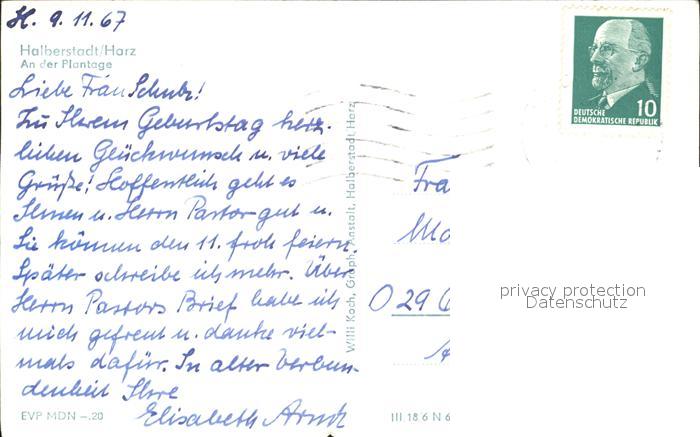 H. 9.11.67
Halberstadt/Harz
An der Plantage
Liebe Frau Schulz!
Zu Ihrem Geburtstag herz-
lichen Glückwunsch u. viele
Grüße! Hoffentlich geht es
Ihnen u. Herrn Pastor gut u.
Sie können den 11. froh feiern.
Später schreibe ich mehr. Über
Herrn Pastors Brief habe ich
mich gefreut u. danke viel-
mals dafür. In alter Verbun-
denheit Ihre
Elisabeth Arndt
EVP MDN –.20
Willi Koch, Graph. Anstalt, Halberstadt Harz
III 18 6 N 6
DEUTSCHE
DEMOKRATISCHE REPUBLIK
10
Fra
O 29
privacy protection
Datenschutz